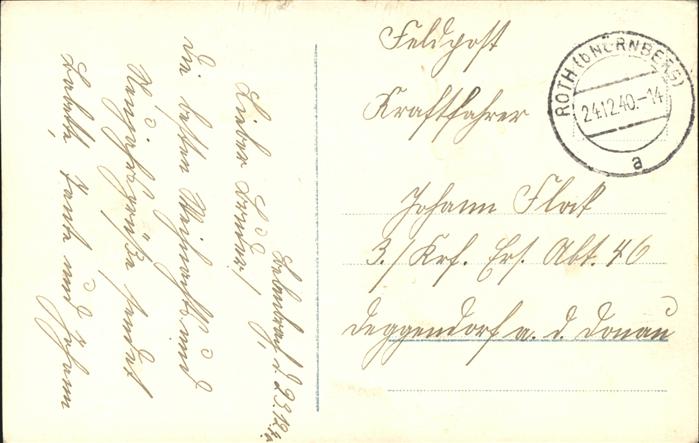 Feldpost
Kraftfahrer
ROTH (b NÜRNBERG)
24.12.40.-14
a
Johann Flock
3./Krf. Ers. Abt. 46
Deggendorf a. d. Donau
d. 23.12.
Lieber Bruder!
Die besten Weihnachts und
Neujahrsgrüße sendet
und Johann